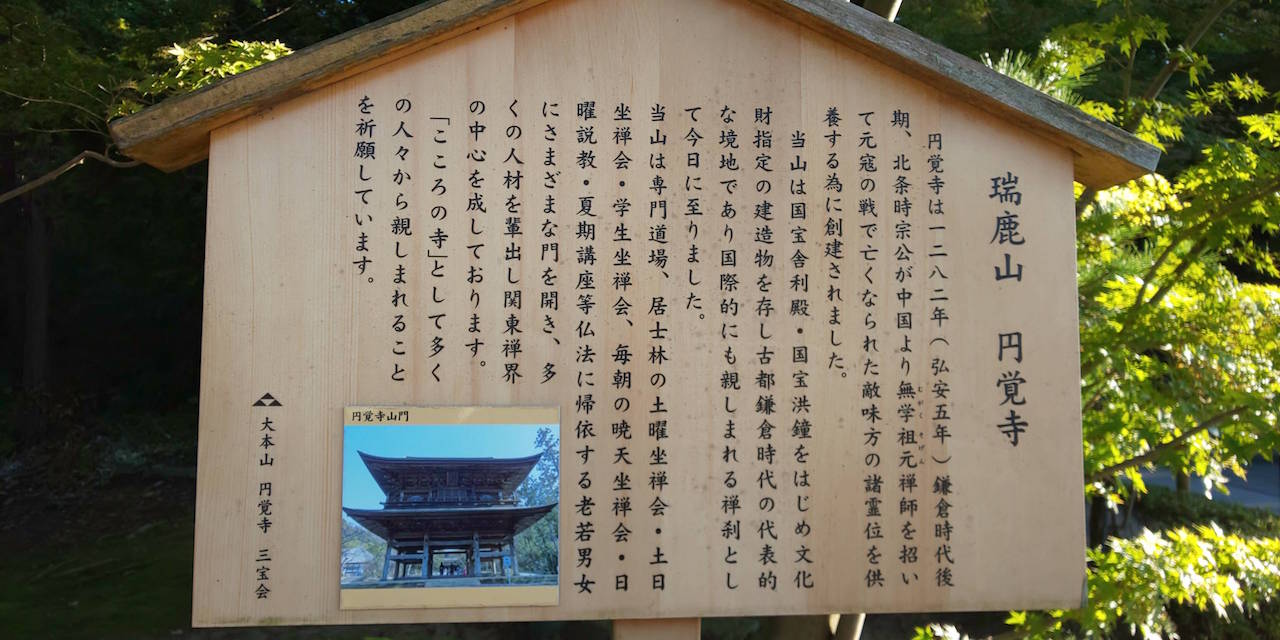 瑞鹿山　円覚寺
円覚寺は一二八二年（弘安五年）鎌倉時代後
期、北条時宗公が中国より無学祖元禅師を招い
むがく　そげん
て元寇の戦で亡くなられた敵味方の諸霊位を供
養する為に創建されました。
当山は国宝舎利殿・国宝洪鐘をはじめ文化
財指定の建造物を存し古都鎌倉時代の代表的
な境地であり国際的にも親しまれる禅刹とし
て今日に至りました。
当山は専門道場、居士林の土曜坐禅会・土日
坐禅会・学生坐禅会、毎朝の暁天坐禅会・日
曜説教・夏期講座等仏法に帰依する老若男女
にさまざまな門を開き、多
くの人材を輩出し関東禅界
の中心を成しております。
「こころの寺」として多く
の人々から親しまれること
を祈願しています。
円覚寺山門
大本山　円覚寺　三宝会